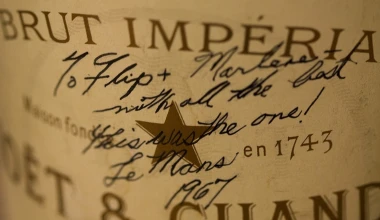 BRUT IMPÉRIA
To Flip + Marlene
with all the best
this was the one!
Maison fond
en 1743
Le Mans
1967
OËT & CHAND